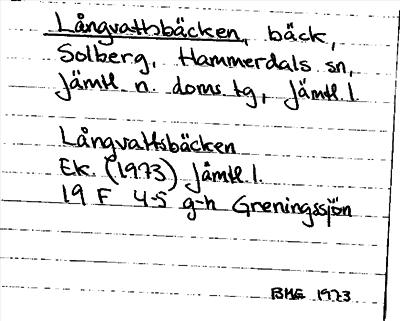 Långvattsbäcken, bäck,
Solberg, Hammerdals sn,
Jämtl n. doms. tg, Jämtl. l.
Långvattsbäcken
Ek. (1973) Jämtl. l.
19 F 4-5 g-h Greningssjön
BME 1973